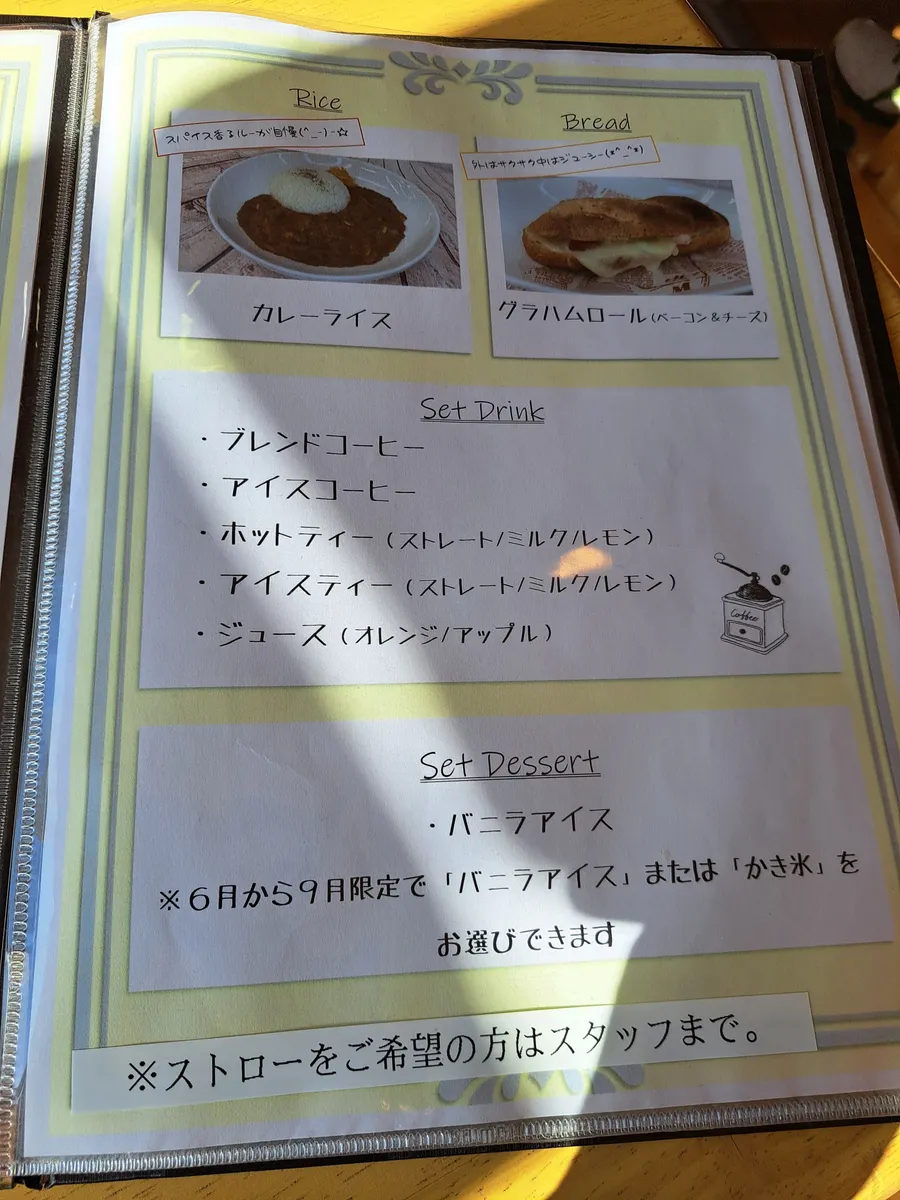 Rice
スパイス香るルーが自慢(^_-)-☆
カレーライス
Bread
外はサクサク中はジューシー(*^_^*)
グラハムロール(ベーコン&チーズ)
Set Drink
・ブレンドコーヒー
・アイスコーヒー
・ホットティー(ストレート/ミルク/レモン)
・アイスティー(ストレート/ミルク/レモン)
・ジュース(オレンジ/アップル)
Coffee
Set Dessert
・バニラアイス
※6月から9月限定で「バニラアイス」または「かき氷」を
お選びできます
※ストローをご希望の方はスタッフまで。